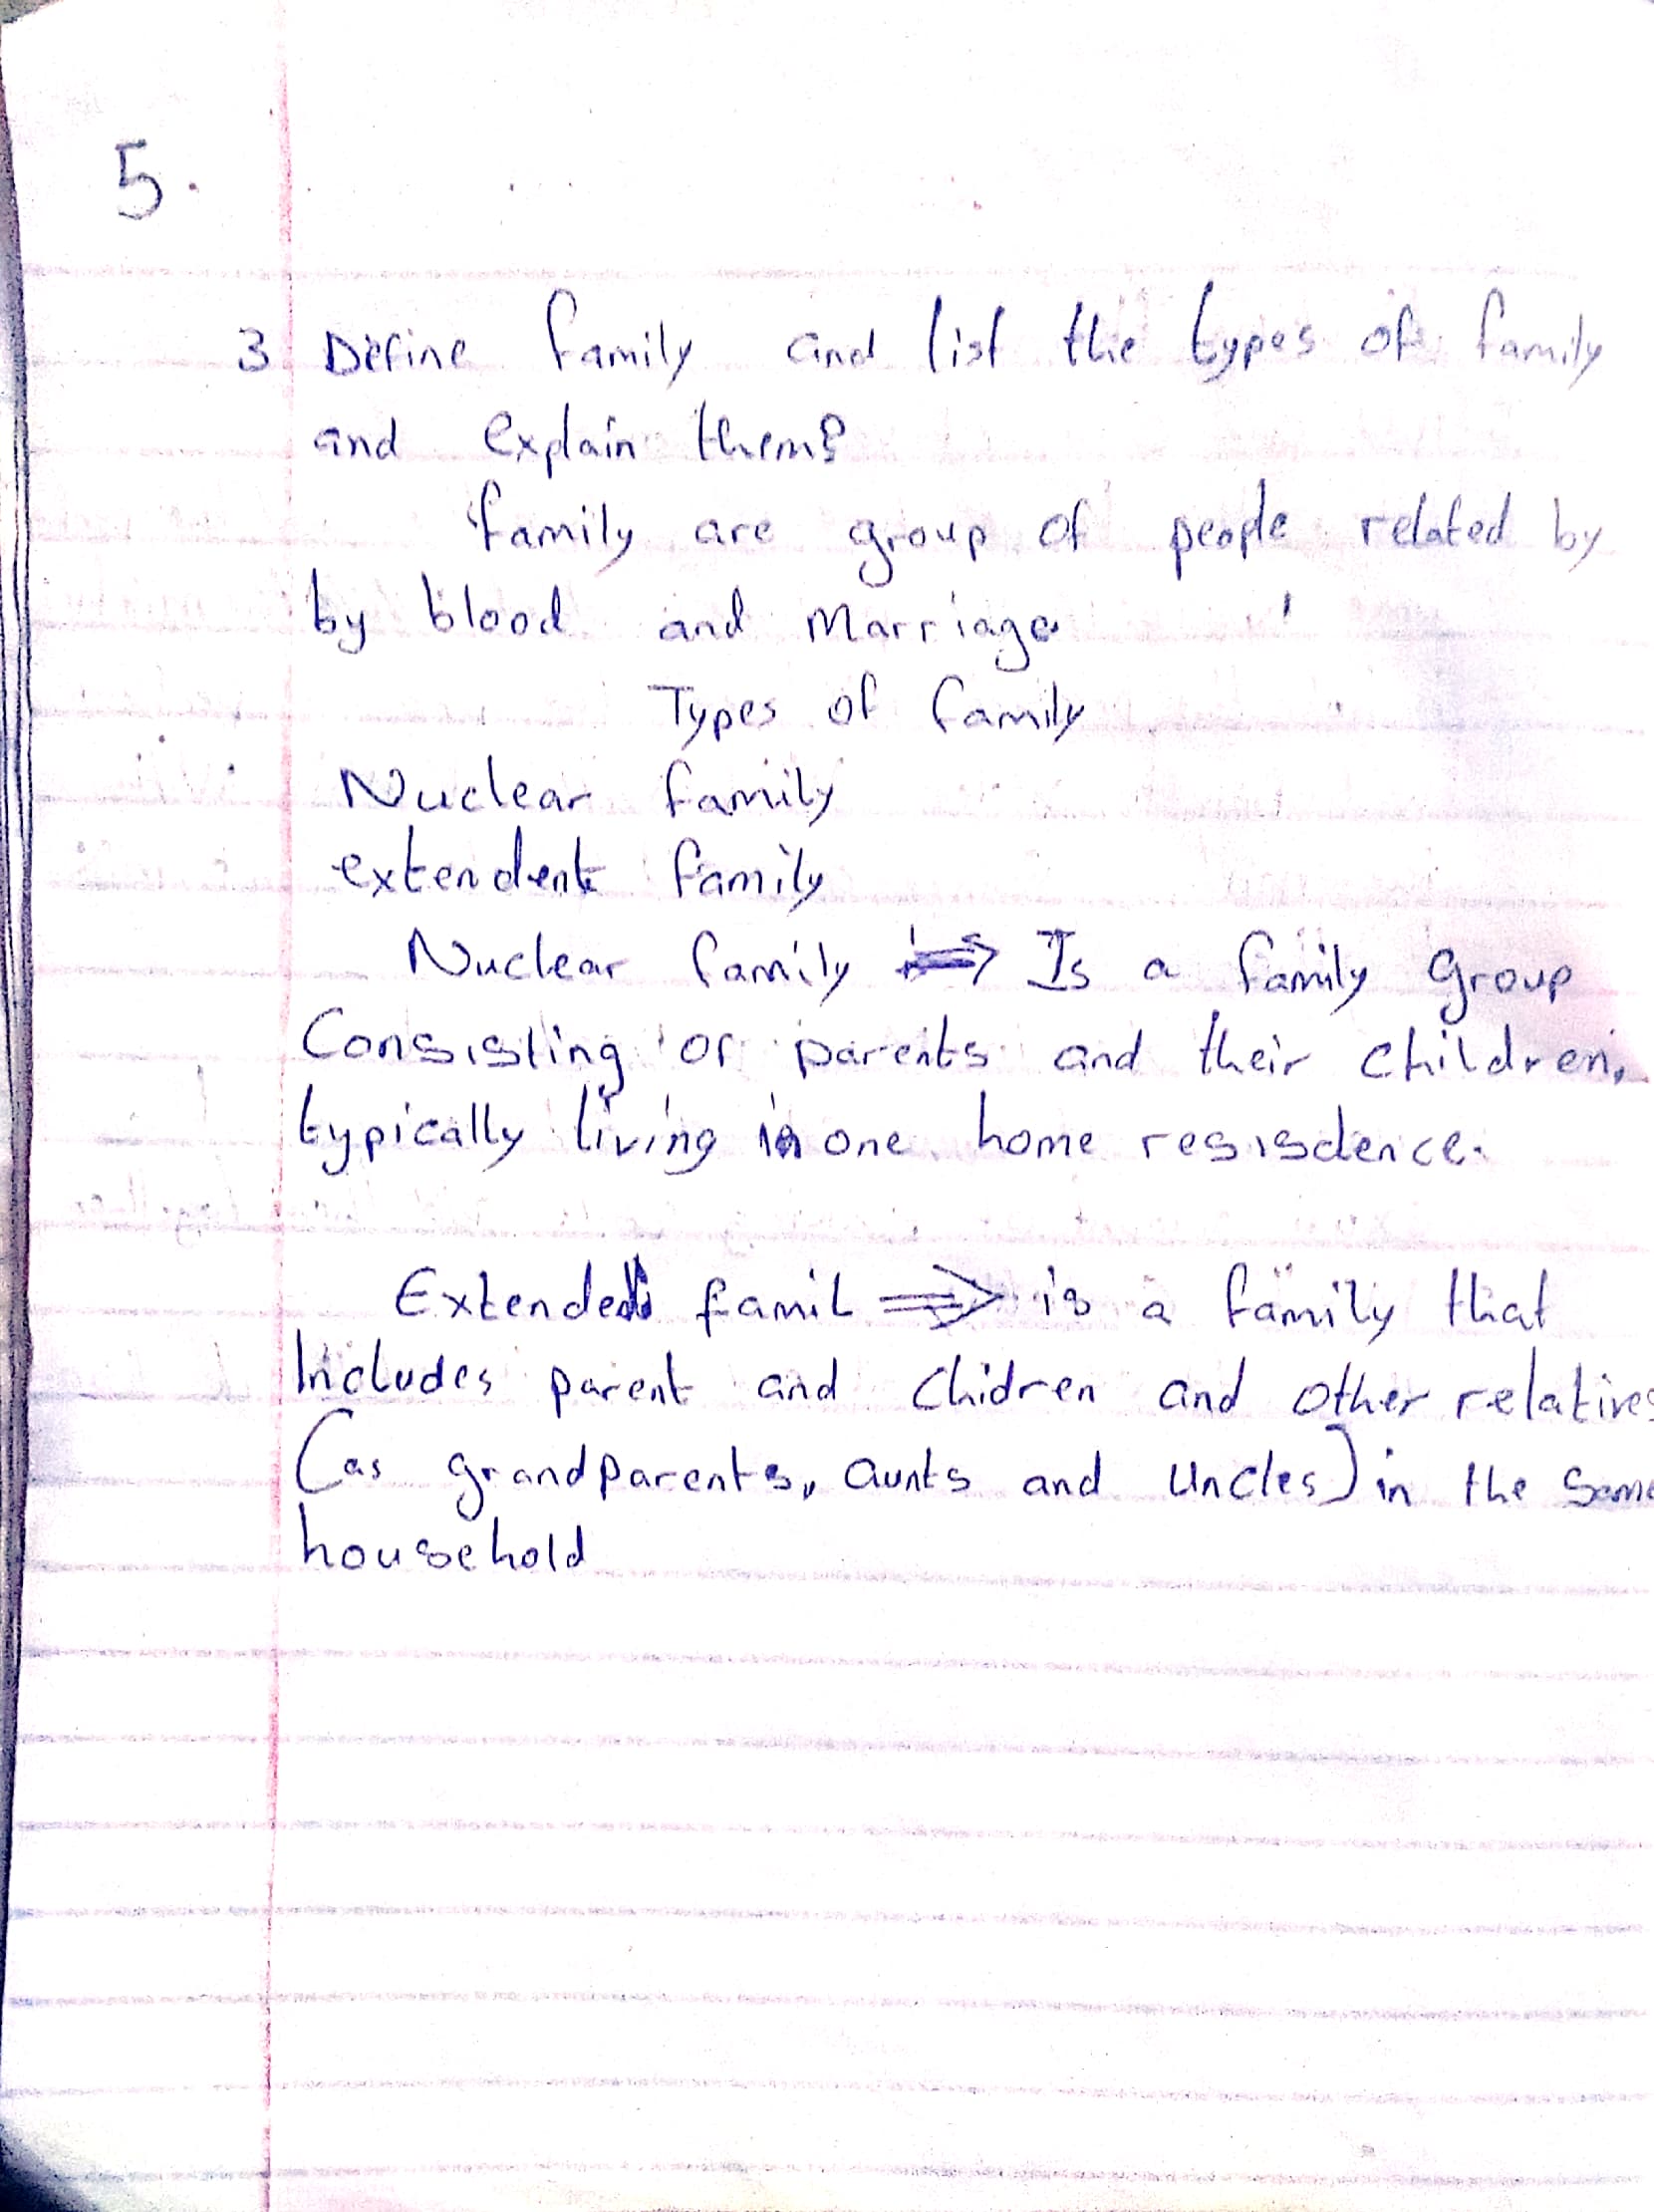 5.
3 Define family and list the types of family
and explain them?
family are group of people related by
by blood and marriage
Types of family
Nuclear family
extendent family
Nuclear family => Is a family group
Consisting of parents and their children,
typically living in one home resisdence.
Extended famil => is a family that
Includes parent and Chidren and other relatives
(as grandparents, aunts and Uncles) in the same
household